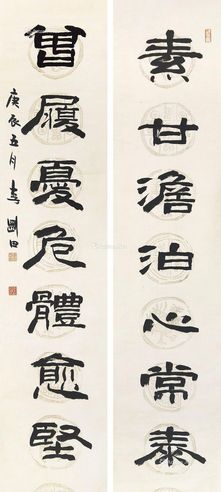 素甘澹泊心常泰
曾履憂危體愈堅
庚辰五月 書 剛田